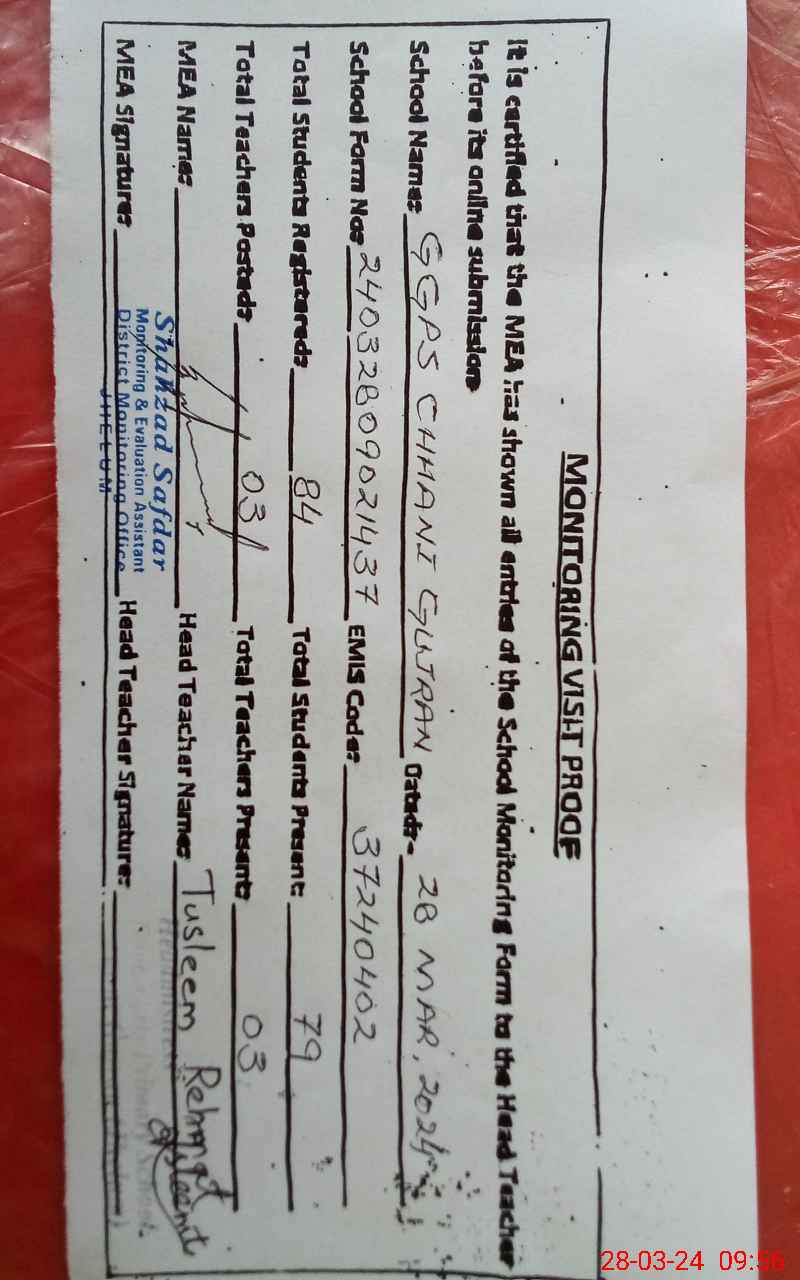 MONITORING VISIT PROOF
It is certified that the MEA has shown all entries of the School Monitoring Form to the Head Teacher
before its online submission
School Name: GGPS CHHANI GUJRAN Dated:- 28 MAR, 2024
School Form No: 24032809021437 EMIS Code: 37240402
Total Students Registered: 84 Total Students Present: 79
Total Teachers Posted: 03 Total Teachers Present: 03
MEA Name: Head Teacher Name: Tusleem Rehmat
Shahzad Safdar
Monitoring & Evaluation Assistant
District Monitoring Office
JHELUM
MEA Signature: Head Teacher Signature:
28-03-24 09:56